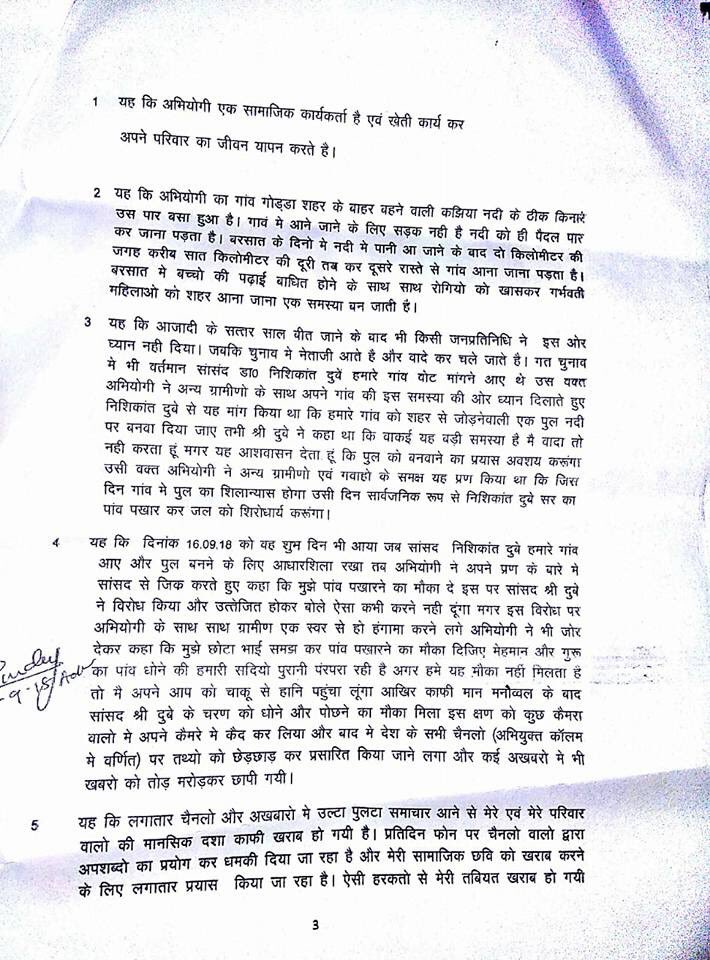 1 यह कि अभियोगी एक सामाजिक कार्यकर्ता है एवं खेती कार्य कर
अपने परिवार का जीवन यापन करते है।
2 यह कि अभियोगी का गांव गोड्डा शहर के बाहर बहने वाली कझिया नदी के ठीक किनारे
उस पार बसा हुआ है। गावं मे आने जाने के लिए सड़क नही है नदी को ही पैदल पार
कर जाना पड़ता है। बरसात के दिनो मे नदी मे पानी आ जाने के बाद दो किलोमीटर की
जगह करीब सात किलोमीटर की दूरी तब कर दूसरे रास्ते से गांव आना जाना पड़ता है।
बरसात मे बच्चो की पढ़ाई बाधित होने के साथ साथ रोगियो को खासकर गर्भवती
महिलाओ को शहर आना जाना एक समस्या बन जाती है।
3 यह कि आजादी के सत्तर साल बीत जाने के बाद भी किसी जनप्रतिनिधि ने इस ओर
ध्यान नही दिया। जबकि चुनाव मे नेताजी आते है और वादे कर चले जाते है। गत चुनाव
मे भी वर्तमान सांसद डा0 निशिकांत दुबें हमारे गांव वोट मांगने आए थे उस वक्त
अभियोगी ने अन्य ग्रामीणो के साथ अपने गांव की इस समस्या की ओर ध्यान दिलाते हुए
निशिकांत दुबे से यह मांग किया था कि हमारे गांव को शहर से जोड़नेवाली एक पुल नदी
पर बनवा दिया जाए तभी श्री दुबे ने कहा था कि वाकई यह बड़ी समस्या है मै वादा तो
नही करता हूं मगर यह आशवासन देता हूं कि पुल को बनवाने का प्रयास अवशय करूंगा
उसी वक्त अभियोगी ने अन्य ग्रामीणो एवं गवाहो के समक्ष यह प्रण किया था कि जिस
दिन गांव मे पुल का शिलान्यास होगा उसी दिन सार्वजनिक रूप से निशिकांत दुबे सर का
पांव पखार कर जल को शिरोधार्य करूंगा।
4 यह कि दिनांक 16.09.18 को वह शुभ दिन भी आया जब सांसद निशिकांत दुबे हमारे गांव
आए और पुल बनने के लिए आधारशिला रखा तब अभियोगी ने अपने प्रण के बारे मे
सांसद से जिक करते हुए कहा कि मुझे पांव पखारने का मौका दे इस पर सांसद श्री दुबे
ने विरोध किया और उत्तेजित होकर बोले ऐसा कभी करने नही दूंगा मगर इस विरोध पर
अभियोगी के साथ साथ ग्रामीण एक स्वर से हो हंगामा करने लगे अभियोगी ने भी जोर
देकर कहा कि मुझे छोटा भाई समझ कर पांव पखारने का मौका दिजिए मेहमान और गुरू
का पांव धोने की हमारी सदियो पुरानी पंरपरा रही है अगर हमे यह मौका नही मिलता है
तो मै अपने आप को चाकू से हानि पहुंचा लूंगा आखिर काफी मान मनौव्वल के बाद
सांसद श्री दुबे के चरण को धोने और पोछने का मौका मिला इस क्षण को कुछ कैमरा
वालो मे अपने कैमरे मे कैद कर लिया और बाद मे देश के सभी चैनलो (अभियुक्त कॉलम
मे वर्णित) पर तथ्यो को छेड़छाड़ कर प्रसारित किया जाने लगा और कई अखबरो मे भी
खबरो को तोड़ मरोड़कर छापी गयी।
5 यह कि लगातार चैनलो और अखबारो मे उल्टा पुलटा समाचार आने से मेरे एवं मेरे परिवार
वालो की मानसिक दशा काफी खराब हो गयी है। प्रतिदिन फोन पर चैनलो वालो द्वारा
अपशब्दो का प्रयोग कर धमकी दिया जा रहा है और मेरी सामाजिक छवि को खराब करने
के लिए लगातार प्रयास किया जा रहा है। ऐसी हरकतो से मेरी तबियत खराब हो गयी
3